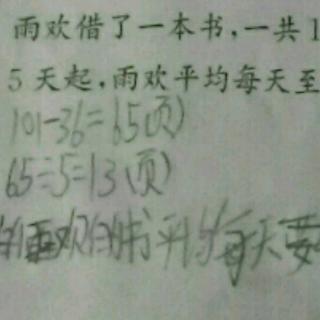 雨欢借了一本书,一共1
5天起,雨欢平均每天至
101-36=65(页)
65÷5=13(页)
雨欢 书平均每天要